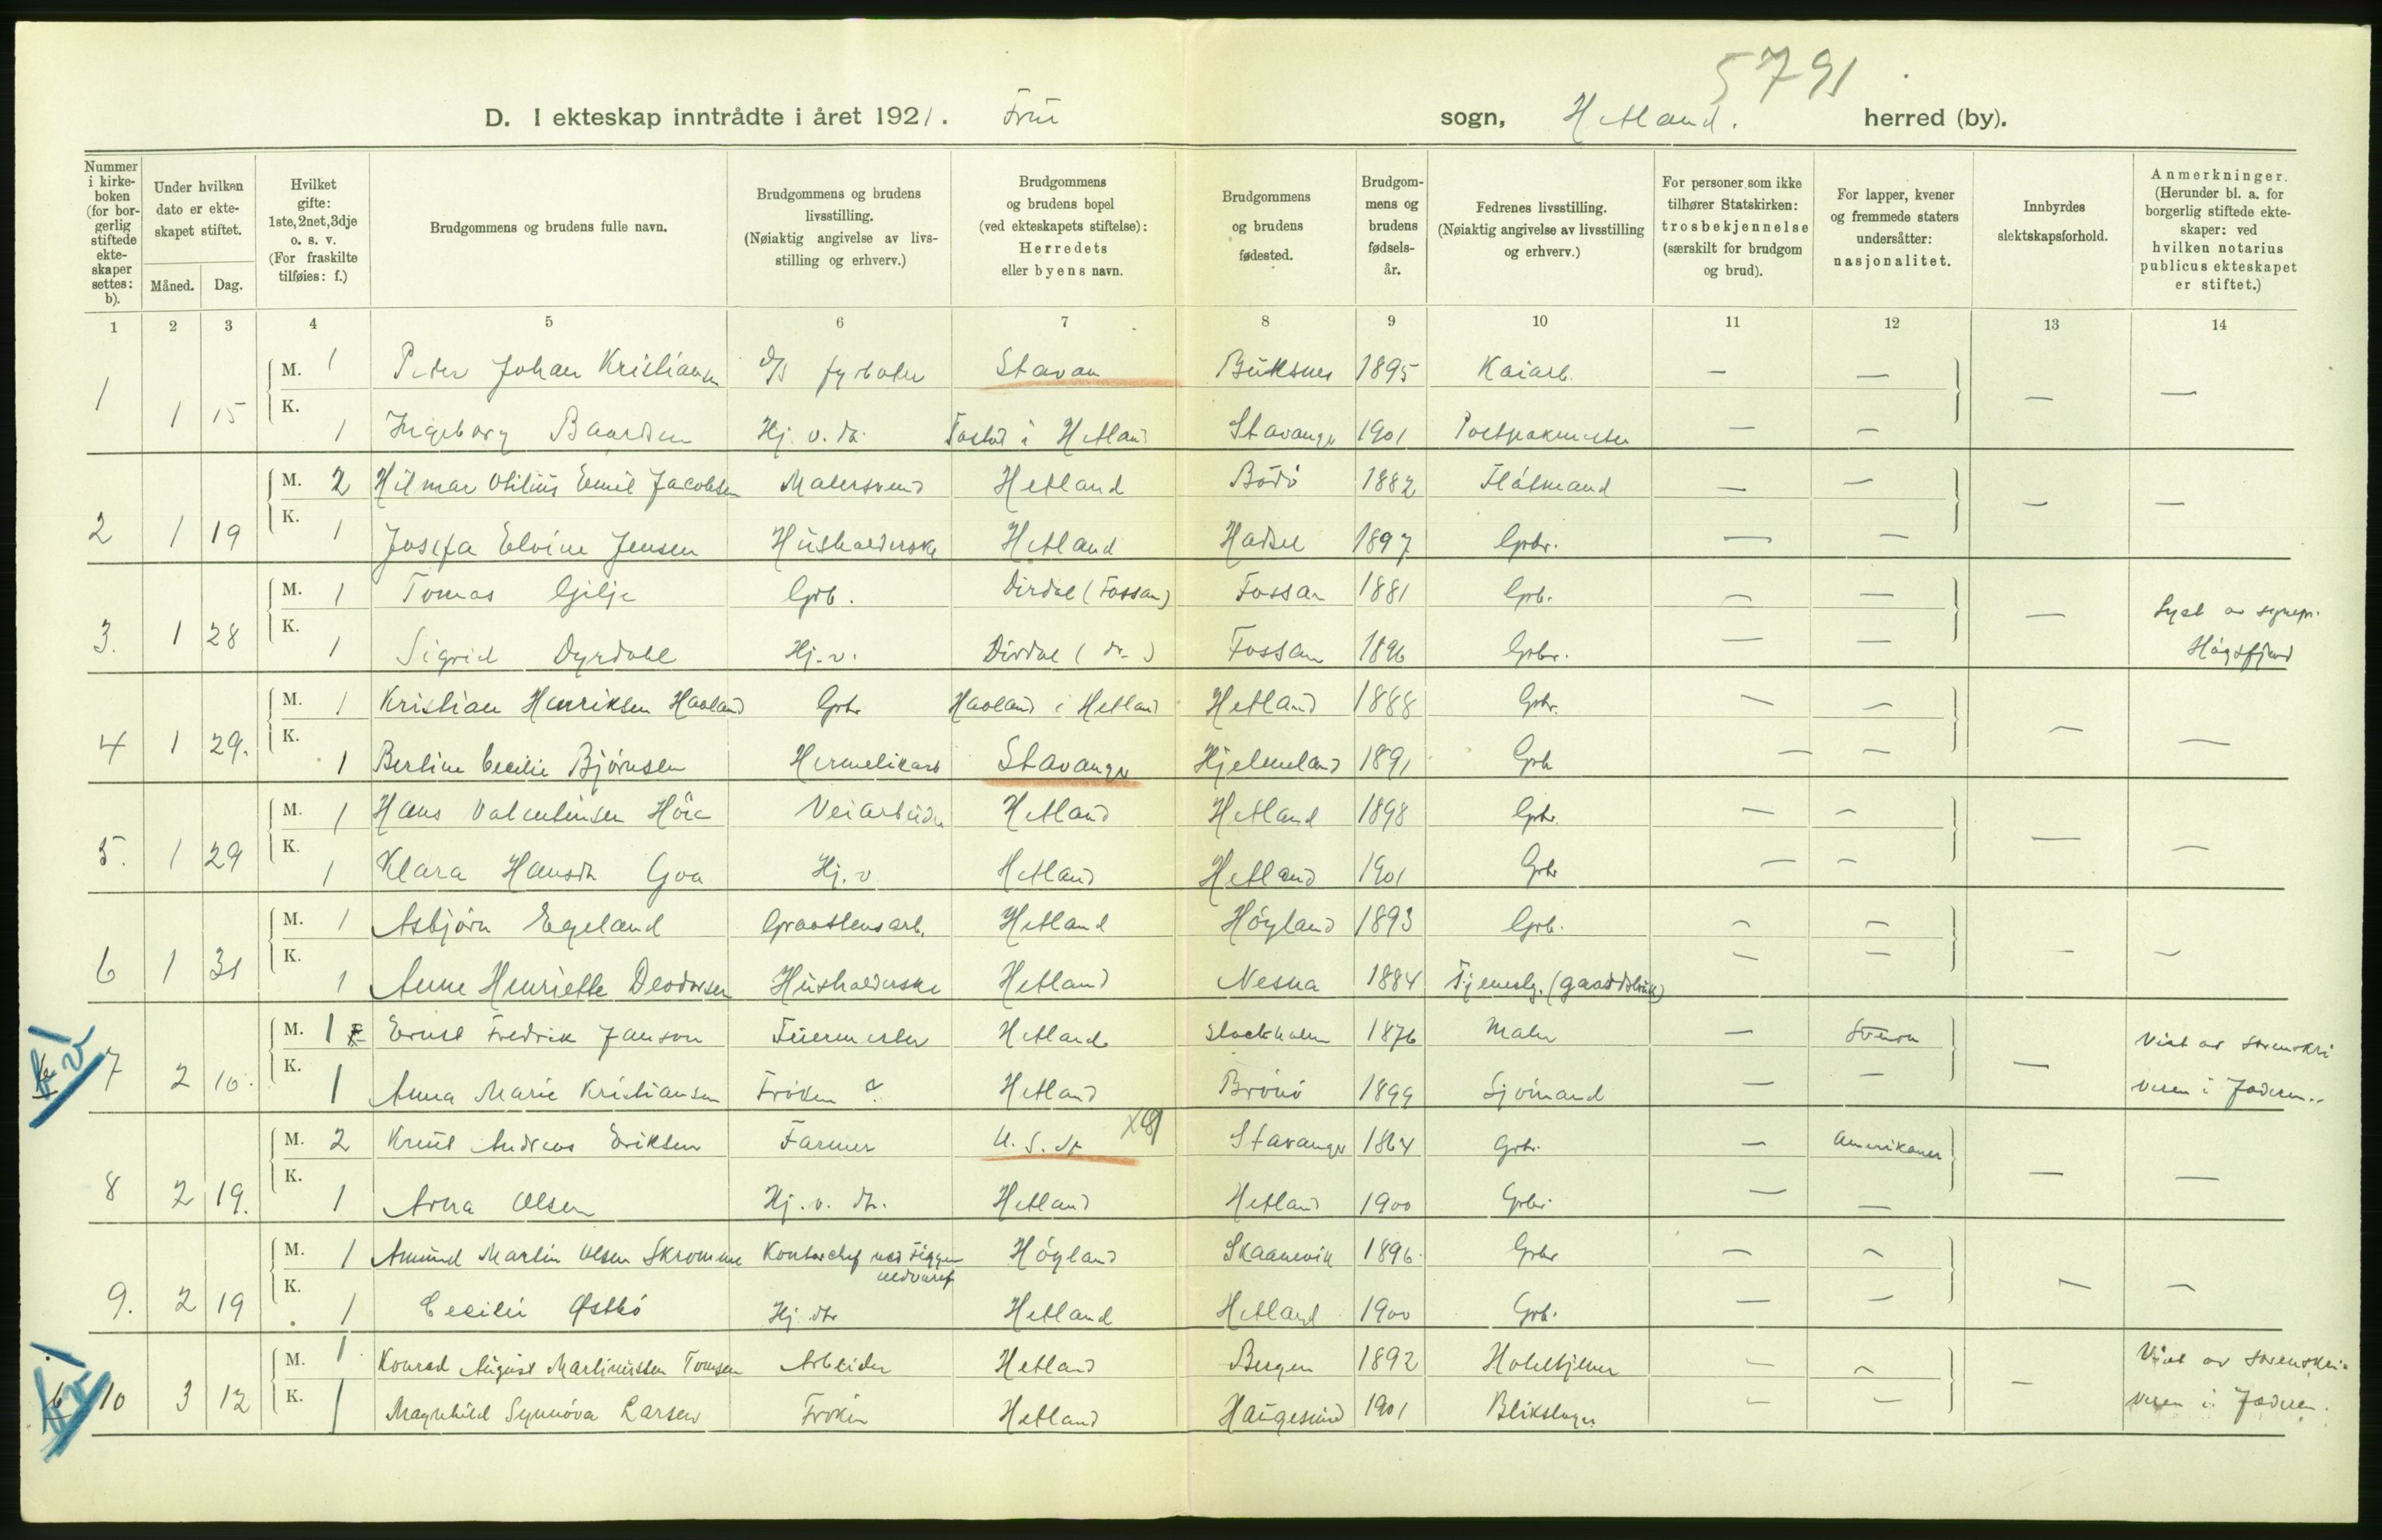 5791
D. I ekteskap inntrådte i året 1921. Frue sogn, Hetland. herred (by).
Nummer i kirkeboken (for borgerlig stiftede ekteskaper settes: b).
Under hvilken dato er ekteskapet stiftet.
Måned. Dag.
Hvilket gifte: 1ste, 2net, 3dje o. s. v. (For fraskilte tilføies: f.)
Brudgommens og brudens fulle navn.
Brudgommens og brudens livsstilling. (Nøiaktig angivelse av livsstilling og erhverv.)
Brudgommens og brudens bopel (ved ekteskapets stiftelse): Herredets eller byens navn.
Brudgommens og brudens fødested.
Brudgommens og brudens fødselsår.
Fedrenes livsstilling. (Nøiaktig angivelse av livsstilling og erhverv.)
For personer som ikke tilhører Statskirken: trosbekjennelse (særskilt for brudgom og brud).
For lapper, kvener og fremmede staters undersåtter: nasjonalitet.
Innbyrdes slektskapsforhold.
Anmerkninger. (Herunder bl. a. for borgerlig stiftede ekteskaper: ved hvilken notarius publicus ekteskapet er stiftet.)
1 2 3 4 5 6 7 8 9 10 11 12 13 14
1 1 15 M. 1 Peter Johan Kristiansen d/s fyrbøter Stavan Buksnes 1895 Kaiarb. — — — —
K. 1 Ingeborg Baardsen Hj. v. dr. i Hetland Stavanger 1901 — —
2 1 19 M. 2 Hilmar Otilius Emil Jacobsen Malersvend Hetland Bodö 1882 — — — —
K. 1 Josefa Elvine Jensen Husholderske Hetland Hadsel 1897 Grbr. — —
3. 1 28 M. 1 Tomas Gilje Grb. Dirdal (Fossan) Fossan 1881 Grb. — — — Lyst av sognepr.
K. 1 Sigrid Dyrdahl Hj. v. Dirdal ( do ) Fossan 1896 Grbr. — — Högsfjord
4 1 29. M. 1 Kristian Henriksen Haaland Grbr Haaland i Hetland Hetland 1888 Grbr. — — — —
K. 1 Bertine Cecilie Björnsen Hermetikarb Stavanger Hjelmeland 1891 Grb — —
5. 1 29 M. 1 Hans Valentinsen Höie Veiarbeider Hetland Hetland 1898 Grbr. — — — —
K. 1 Klara Hansdr Goa Hj. v Hetland Hetland 1901 Grbr — —
6 1 31 M. 1 Asbjörn Egeland Graastensarb. Hetland Höyland 1893 Grb. — — — —
K. 1 Anne Henriette Deodorsen Husholderske Hetland Nesna 1884 — —
7 2 10. M. 1 Ernst Fredrik Janson Hetland Stockholm 1876 Maler — Svensk — Viet av sorenskri
K. 1 Anna Marie Kristiansen Fröken ? Hetland Brönö 1899 Sjömand — — veren i Jæderen..
8 2 19. M. 2 Knut Andreas Eriksen Farmer U. S. St Stavanger 1864 Grbr. — Amerikaner — —
K. 1 Arna Olsen Hj. v. dr. Hetland Hetland 1900 Grbr. — —
9. 2 19 M. 1 Amund Martin Olsen Skromme Kontorchef ved Figgen uldvaref Höyland Skaanevik 1896. Grbr — — — —
K. 1 Cecilie Østbö Hj. dtr Hetland Hetland 1900 Grb. — —
10 3 12 M. 1 Konrad August Martinussen Tomsen Arbeider Hetland Bergen 1892 Hoteltjener — — — Viet av sorenskri-
K. 1 Magnhild Synnöva Larsen Fröken Hetland Haugesund 1901 Blikslager — — veren i Jæderen.